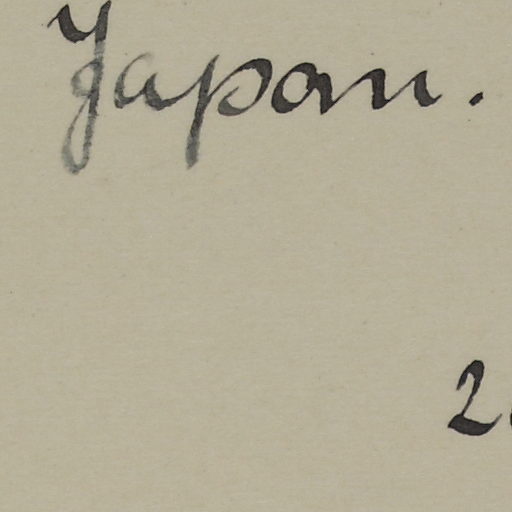 Japan.
2